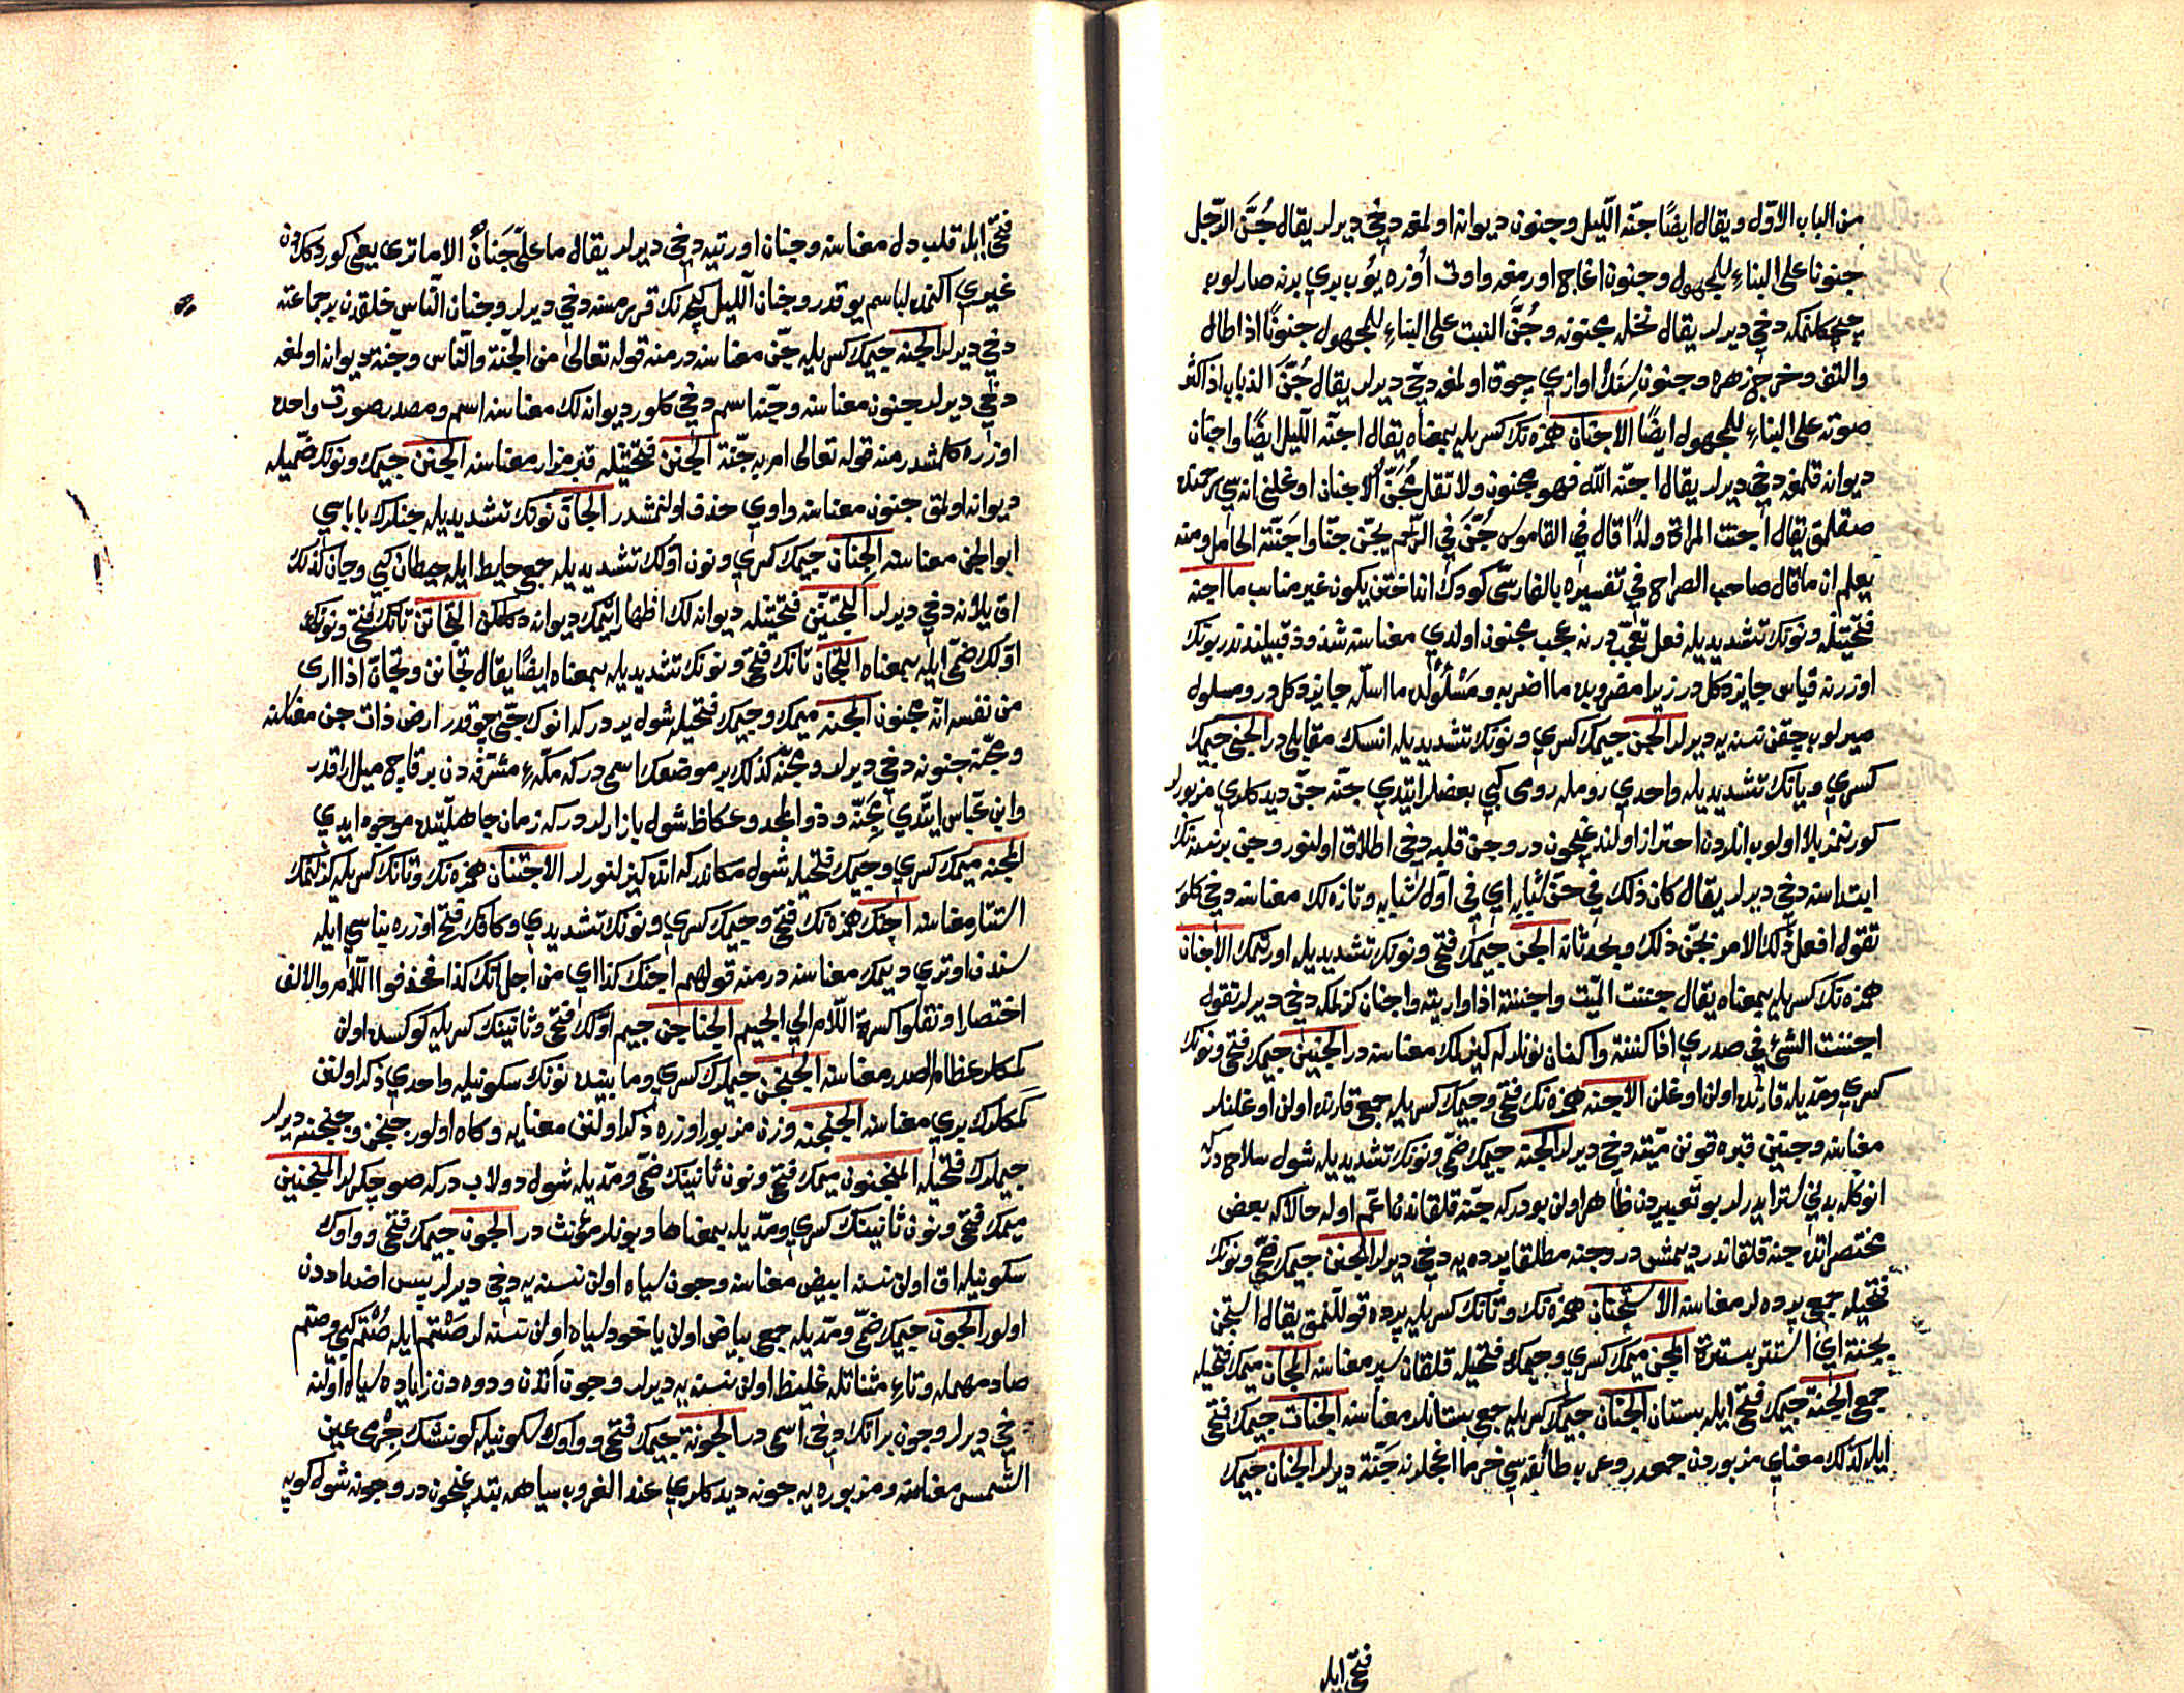 من الباب الاول ويقال ايضًا جنّه الّليل وجنون ديوانه اولمغه دخي ديرلر يقال جُنَّ الرّجل
جنونا على البناءِ للمجهول وجنون اغاج اورمغه واوت اُوزه يوُب يري برنه صارلوب
چچكلنمكه دخي ديرلر يقال نخلة مجنونة وجُنَّ النبت على البناءِ للمجهول جنونًا اذا طال
والتف وخرج زهره وجنون سِنَك اوازي چوق اولمغه دخي ديرلر يقال جُنَّ الذباب اذا كثر
صوته على البناءِ للمجهول ايضًا الاجنان همزه نك كسريله بمعناه يقال اجنّه الّليل ايضًا واجنان
ديوانه قلمغه دخي ديرلر يقال اجنّه اللّه فهو مجنون ولا تقل مُجَنّ الاجنان اوغلني اناسي رحمنده
صقلمق يقال اجنت المراة ولدًا قال في القاموس جُنَّ في الرّحم يجنّ جنّا واجَنّته الحامل ومنه
يعلم ان ما قال صاحب الصراح في تفسيره بالفارسى كودك انداختن يكون غير مناسب ما اجنه
فتحتينله ونونك تشديديله فعل تعجّب در نه عجب مجنون اولدي معناسنه شذوذ قبيلندندر بونك
اوزرنه قياس جايز دكل در زيرا مضروبده ما اضربه ومَسْلُولْده ما اسلّه جايز دكل در ومسلول
ميرلوب چقن نسنه يه ديرلر الجن جيمك كسري ونونك تشديديله انسك مقابلي در الجني جيمك
كسري ويانك تشديديله واحدي روم‌له رومى كبي بعضلر ايتدي جنّه جنّ ديدكلري مزبورلر
كورنمز بلا اولوب انلردن احتراز اولنديغيچون در وجن قلبه دخي اطلاق اولنور وجن بر نسنه نك
ابتداسنه دخي ديرلر يقال كان ذلك في جنّ شبابه اي في اوّل شبابه وتازه لك معناسنه دخي كلور
تقول افعل ذلك الامر بجنّ ذلك وبحدثانه الجن جيمك فتحي ونونك تشديديله اورتمك الاجنان
همزه نك كسريله بمعناه يقال جننت الميّت واجننته اذا واريته واجنان كزلمكه دخي ديرلر تقول
اجننت الشئ في صدري اذا اكننته واكنان نونلرله كيزلمك معناسنه در الجنين جيمك فتحي ونونك
كسري ومدّيله قارنده اولن اوغلن الاجنه همزه نك فتحي وجيمك كسريله جمعي قارنده اولن اوغلنلر
معناسنه وجنين قبره قونن ميّته دخي ديرلر الجنه جيمك ضمّي ونونك تشديديله شول سلاح در كه
انوكله بدني ستر ايدرلر بو تعبيردن ظاهر اولن بودر كه جنّه قلقاندن اعم اوله حالا كه بعض
مختصراتده جنه قلقاندر ديمشدر وجنه مطلقا پرده يه دخي ديرلر الجنن جيمك ضمّي ونونك
فتحيله جمعي پرده لر معناسنه الاستجنان همزه نك وتانك كسريله پرده قوللنمق يقال استجن
بجنّة اي استتر بسترة المجن ميمك كسري وجيمك فتحيله قلقان سپر معناسنه المجان ميمك فتحيله
جمعي الجنة جيمك فتحي ايله بستان الجنان جيمك كسريله جمعي بستانلر معناسنه الجنات جيمك فتحي
ايله كذلك معناي مزبوردن جمعدر وعرب طائفه سي خرما اغجلرنه جَنّة ديرلر الجنان جيمك
فتحي ايله
فتحي ايله قلب دل معناسنه وجنان اورتيه دخي ديرلر يقال ما علىّ جَنانٌ الا ماترى يعني كوردكلردن
غيري اكنمده لباسم يوقدر وجنان الليل كيجه نك قرمسنه دخي ديرلر وجنان النّاس خلقدن بر جماعته
دخي ديرلر الجنه جيمك كسريله جنّ معناسنه در منه قوله تعالى من الجنّة والنّاس وجنّة ديوانه اولمغه
دخي ديرلر جنون معناسنه وجنّه اسم دخي كلور ديوانه لك معناسنه اسم ومصدر صورت واحده
اوزره كلمشدر منه قوله تعالى ام به جنّة الجنن فتحتينله قبر مزار معناسنه الجنن جيمك ونونك ضمّيله
ديوانه اولمق جنون معناسنه واوي حذف اولنمشدر الجانّ نونك تشديديله جنلرك باباسي
ابو الجن معناسنه الجنان جيمك كسري ونون اوّلك تشديديله جمعي حايط ايله حيطان كبي وجان كذلك
اق ييلانه دخي ديرلر التجنّن فتحتينله ديوانه لك اظهار ايتمك ديوانه دكلكن التجانن تانك فتحي ونونك
اوّلك ضمّي ايله بمعناه التجانّ تانك فتحي ونونك تشديديله بمعناه ايضًا يقال تجانن وتجانّ اذا ارى
من نفسه انّه مجنون المجنه ميمك وجيمك فتحيله شول ير در كه انوك جنّي چوقدر ارض ذات جن معناسنه
ومجنّه جنونه دخي ديرلر ومجنّه كذلك بر موضعك اسمى در كه مكّهءِ مشرّفه دن بر قاچ ميل ايراقدر
وابن عبّاس ايتدي مجَنّه وذو المجد وعكاظ شول بازارلر در كه زمان جاهليّتده موجود ايدي
المجنه ميمك كسري وجيمك فتحيله شول مكاندر كه انده كيزلنورلر الاجتنان همزه نك وتانك كسريله كزلنمك
استتار معناسنه اجنك همزه نك فتحي وجيمك كسري ونونك تشديدي وكافك فتحي اوزره بناسي ايله
سندن اوتري ديمك معناسنه در منه قولهم اجنك كذا اي من اجل انّك كذا فحذفوا اللّام والالف
اختصارا ونقلوا كسرة اللّام الى الجيم الجناجن جيم اوّلك فتحي وثانينك كسريله كوكسده اولن
كمكلر عظام الصدر معناسنه الجنجن جيملرك كسري وما بينده نونك سكونيله واحدي ذكر اولنن
كمكلرك بري معناسنه الجنجنة وزن مزبور اوزره ذكر اولنن معنايه وكاه اولور جنجن وجنجنه ديرلر
جيملرك فتحيله المنجنون ميمك فتحي ونون ثانينك ضمّي ومدّيله شول دولاب در كه صو چكرلر المنجنين
ميمك فتحي ونون ثانينك كسري ومدّيله بمعناها وبونلر مؤنث در الجون جيمك فتحي وواوك
سكونيله اق اولن نسنه ابيض معناسنه وجون سياه اولن نسنه يه دخي ديرلر پس اضداددن
اولور الجون جيمك ضمّي ومدّيله جمعي بياض اولن ياخود سياه اولن نسنه لر صَتْم ايله صُتْم كبي وصتم
صاد مهمله وتاءِ مثناتله غليظ اولن نسنه يه ديرلر وجون آتدن ودوه دن زياده سياه اولنه
دخي ديرلر وجون بر اتك دخي اسمى در الجونة جيمك فتحي وواوك سكونيله كونشك جِرمى عين
الشّمس معناسنه ومزبوره يه جونه ديدكلري عند الغروب سياهه يتديغيچون در وجونه شول كوپه